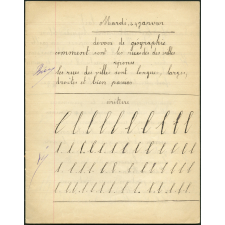 Mardi, 24 janvier
devoir de géographie
comment sont les rues des villes
réponse
les rues des villes sont longues, larges,
droites et bien pavées
écriture
l l l l l l l l l l l
l l l l l l l l l l l l
l l l l l l l l l l l l
l l l l l l l l l l l l